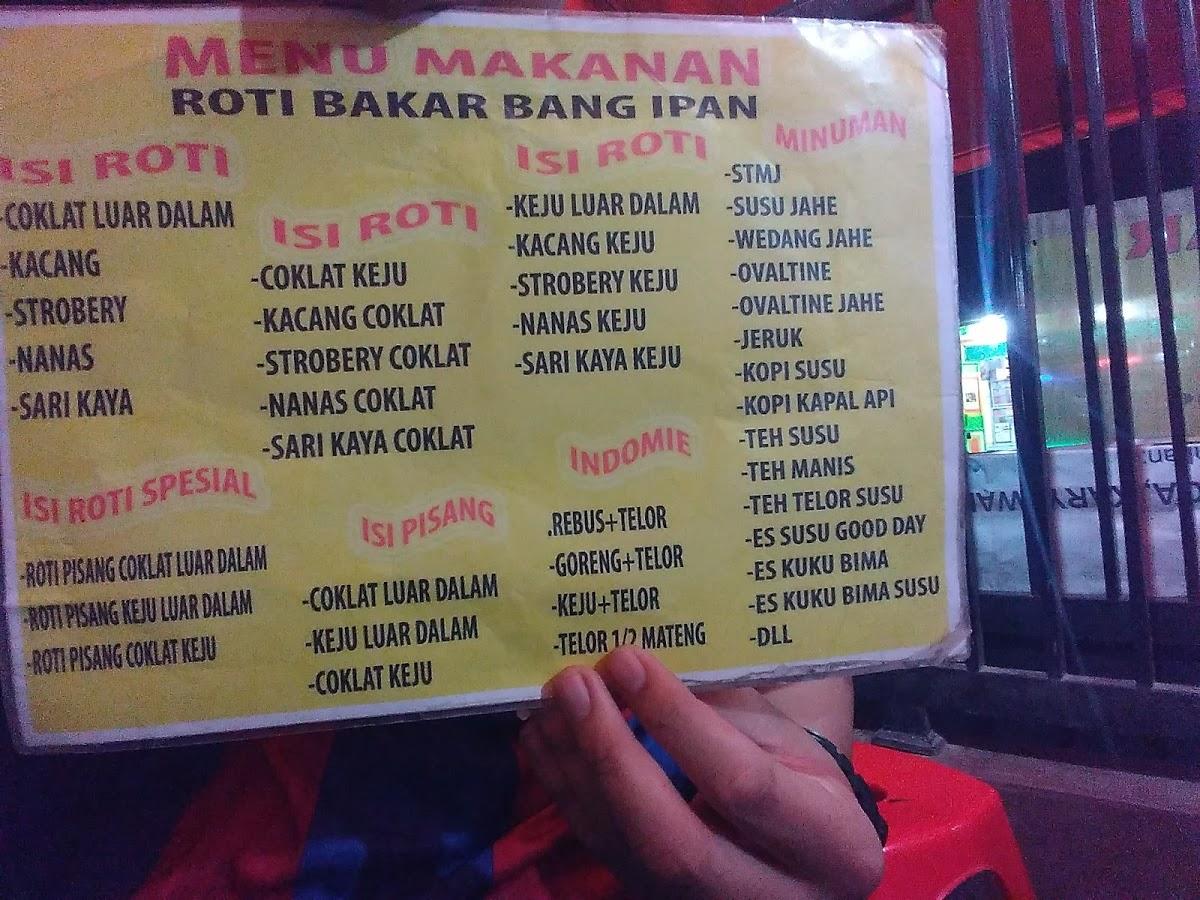 MENU MAKANAN
ROTI BAKAR BANG IPAN
ISI ROTI
-COKLAT LUAR DALAM
-KACANG
-STROBERY
-NANAS
-SARI KAYA
ISI ROTI
-COKLAT KEJU
-KACANG COKLAT
-STROBERY COKLAT
-NANAS COKLAT
-SARI KAYA COKLAT
ISI ROTI
-KEJU LUAR DALAM
-KACANG KEJU
-STROBERY KEJU
-NANAS KEJU
-SARI KAYA KEJU
MINUMAN
-STMJ
-SUSU JAHE
-WEDANG JAHE
-OVALTINE
-OVALTINE JAHE
-JERUK
-KOPI SUSU
-KOPI KAPAL API
-TEH SUSU
-TEH MANIS
-TEH TELOR SUSU
-ES SUSU GOOD DAY
-ES KUKU BIMA
-ES KUKU BIMA SUSU
-DLL
ISI ROTI SPESIAL
-ROTI PISANG COKLAT LUAR DALAM
-ROTI PISANG KEJU LUAR DALAM
-ROTI PISANG COKLAT KEJU
ISI PISANG
-COKLAT LUAR DALAM
-KEJU LUAR DALAM
-COKLAT KEJU
INDOMIE
.REBUS+TELOR
-GORENG+TELOR
-KEJU+TELOR
-TELOR 1/2 MATENG